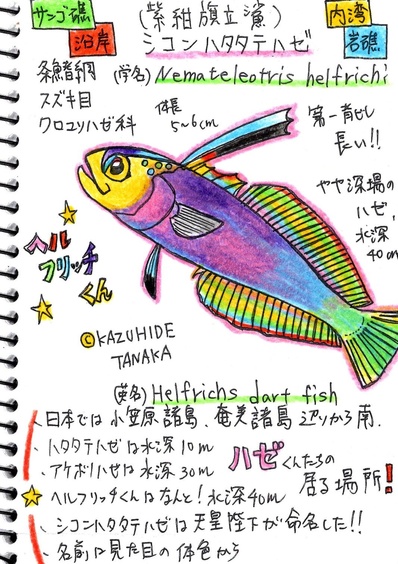 サンゴ礁
沿岸
(紫紺旗立鯊)
シコンハタタテハゼ
内湾
岩礁
条鰭綱
スズキ目
クロユリハゼ科
(学名) Nemateleotris helfrichi
体長
5〜6cm
第一背ビレ
長い!!
やや深場の
ハゼ、
水深
40m
ヘル
フリッチ
くん
©KAZUHIDE
TANAKA
(英名) Helfrichs dart fish
、日本では小笠原諸島、奄美諸島辺りから南.
・ハタタテハゼは水深10m
・アケボノハゼは水深30m
ハゼくんたちの
居る場所!
ヘルフリッチくんはなんと!水深40m
・シコンハタタテハゼは天皇陛下が命名した!!
・名前は見た目の体色から